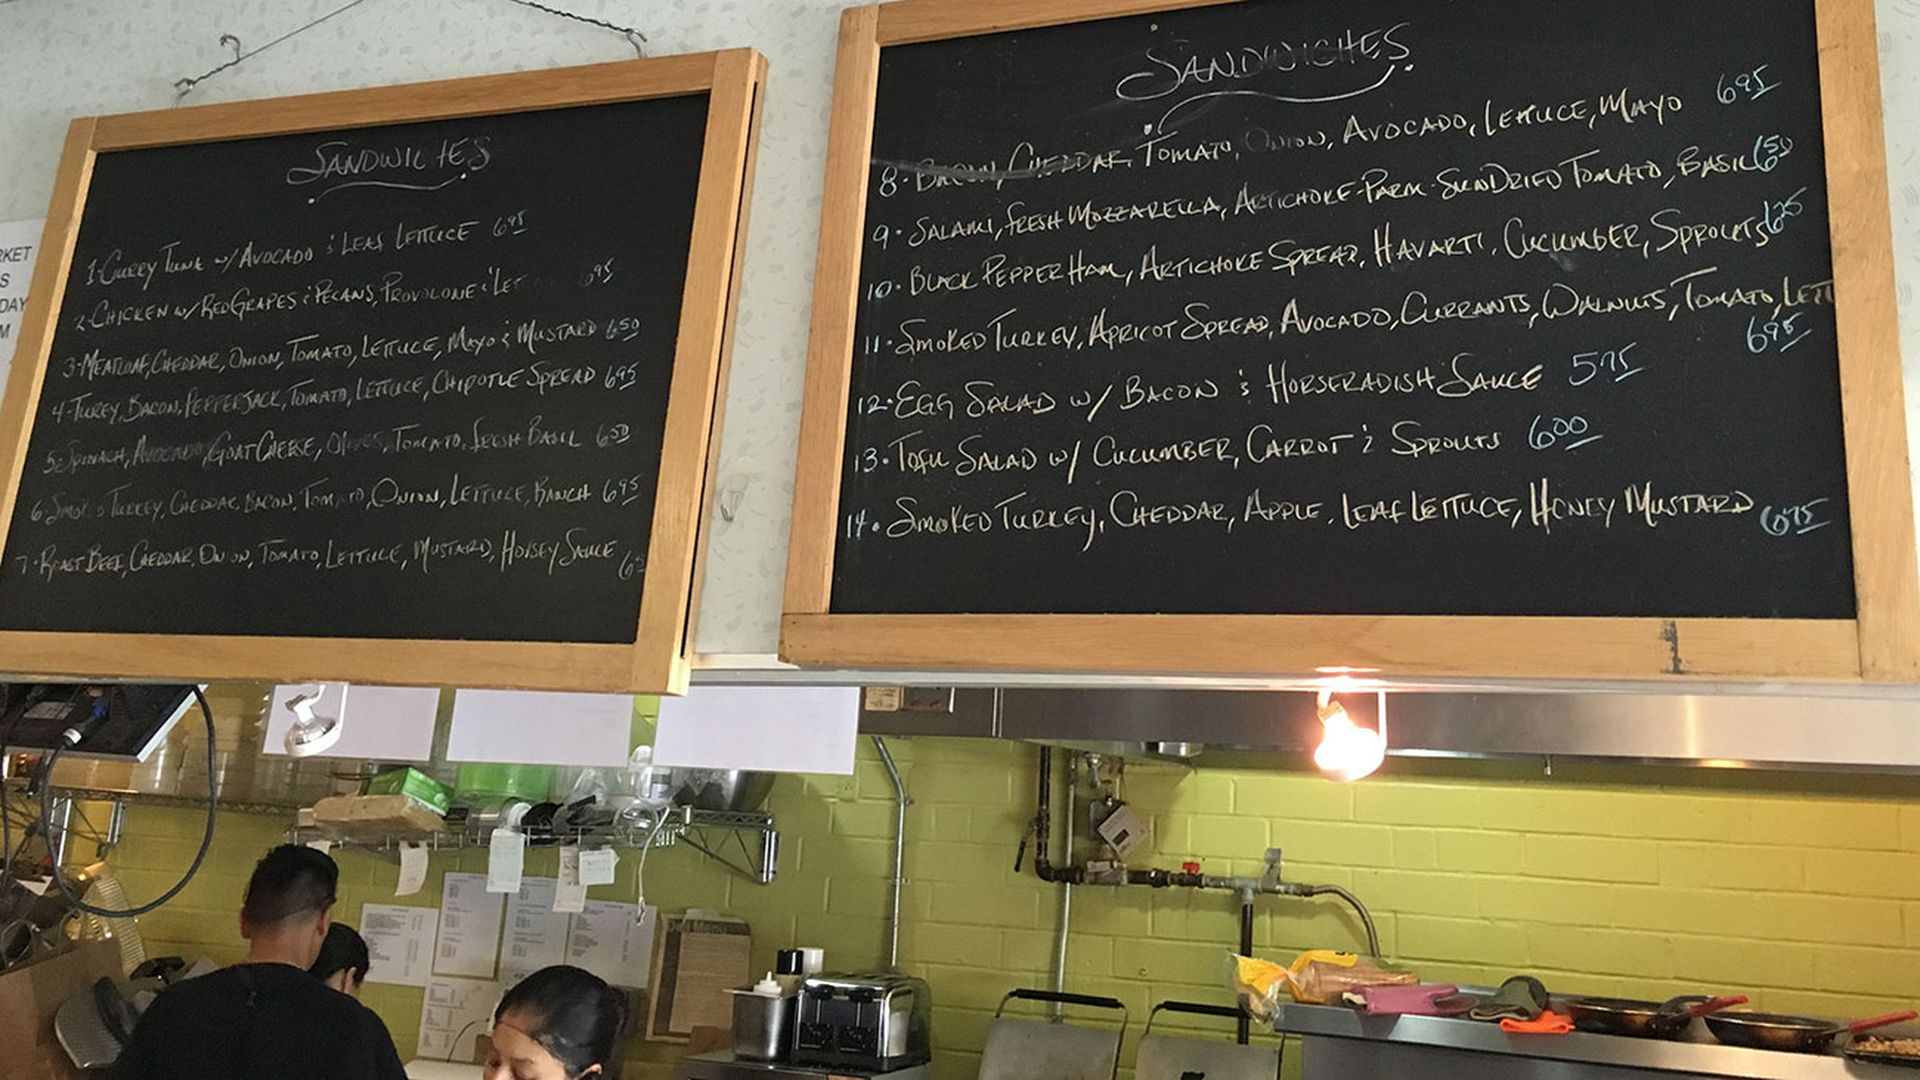 SANDWICHES
1. CURRY TUNA w/ AVOCADO & LEAF LETTUCE 6.95
2. CHICKEN w/ RED GRAPES & PECANS, PROVOLONE & 6.95
3. MEATLOAF, CHEDDAR, ONION, TOMATO, LETTUCE, MAYO & MUSTARD 6.50
4. TUREY, BACON, PEPPERJACK, TOMATO, LETTUCE, CHIPOTLE SPREAD 6.95
5. SPINACH, AVOCADO, GOAT CHEESE, OLIVES, TOMATO, FRESH BASIL 6.50
6. TURKEY, CHEDDAR, BACON, TOMATO, ONION, LETTUCE, RANCH 6.95
7. ROAST BEEF, CHEDDAR, ONION, TOMATO, LETTUCE, MUSTARD, HORSEY SAUCE
SANDWICHES
8. BACON, CHEDDAR, TOMATO, ONION, AVOCADO, LETTUCE, MAYO 6.95
9. SALAMI, FRESH MOZZARELLA, ARTICHOKE-PARM-SUNDRIED TOMATO, BASIL 6.50
10. BLACK PEPPER HAM, ARTICHOKE SPREAD, HAVARTI, CUCUMBER, SPROUTS 6.25
11. SMOKED TURKEY, APRICOT SPREAD, AVOCADO, CURRANTS, WALNUTS, TOMATO, LETT
6.95
12. EGG SALAD w/ BACON & HORSERADISH SAUCE 5.75
13. TOFU SALAD w/ CUCUMBER, CARROT & SPROUTS 6.00
14. SMOKED TURKEY, CHEDDAR, APPLE, LEAF LETTUCE, HONEY MUSTARD 6.75
RKET
S
DAY
M
Deli Menu